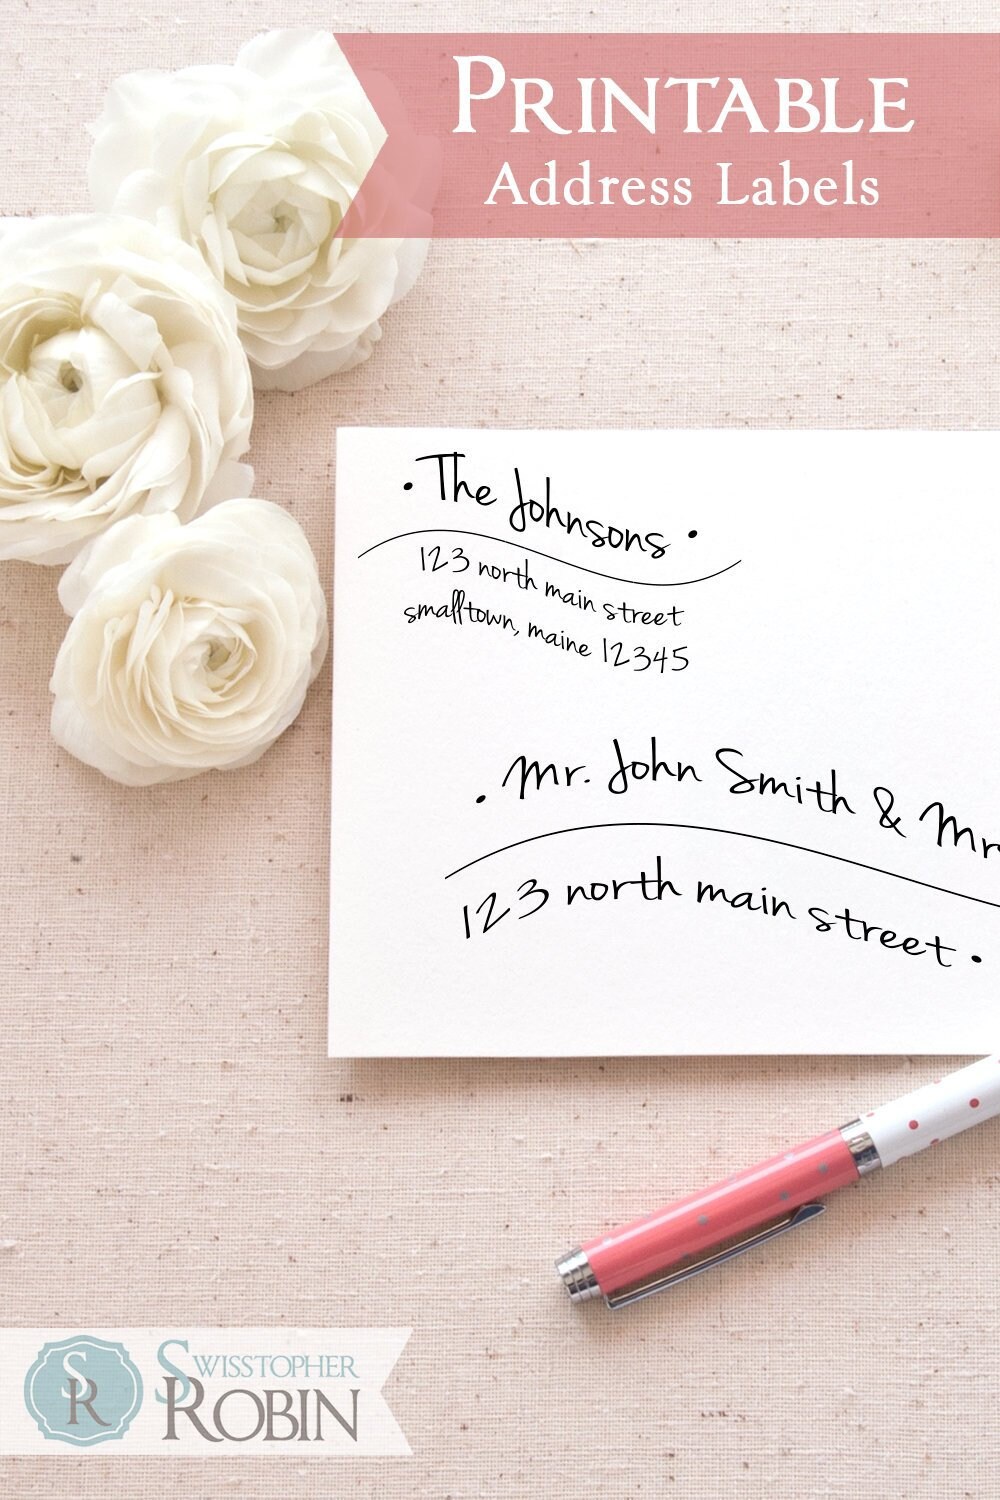 PRINTABLE
Address Labels
• The Johnsons •
123 north main street
smalltown, maine 12345
• Mr. John Smith & Mr
123 north main street •
SR
SWISSTOPHER
ROBIN